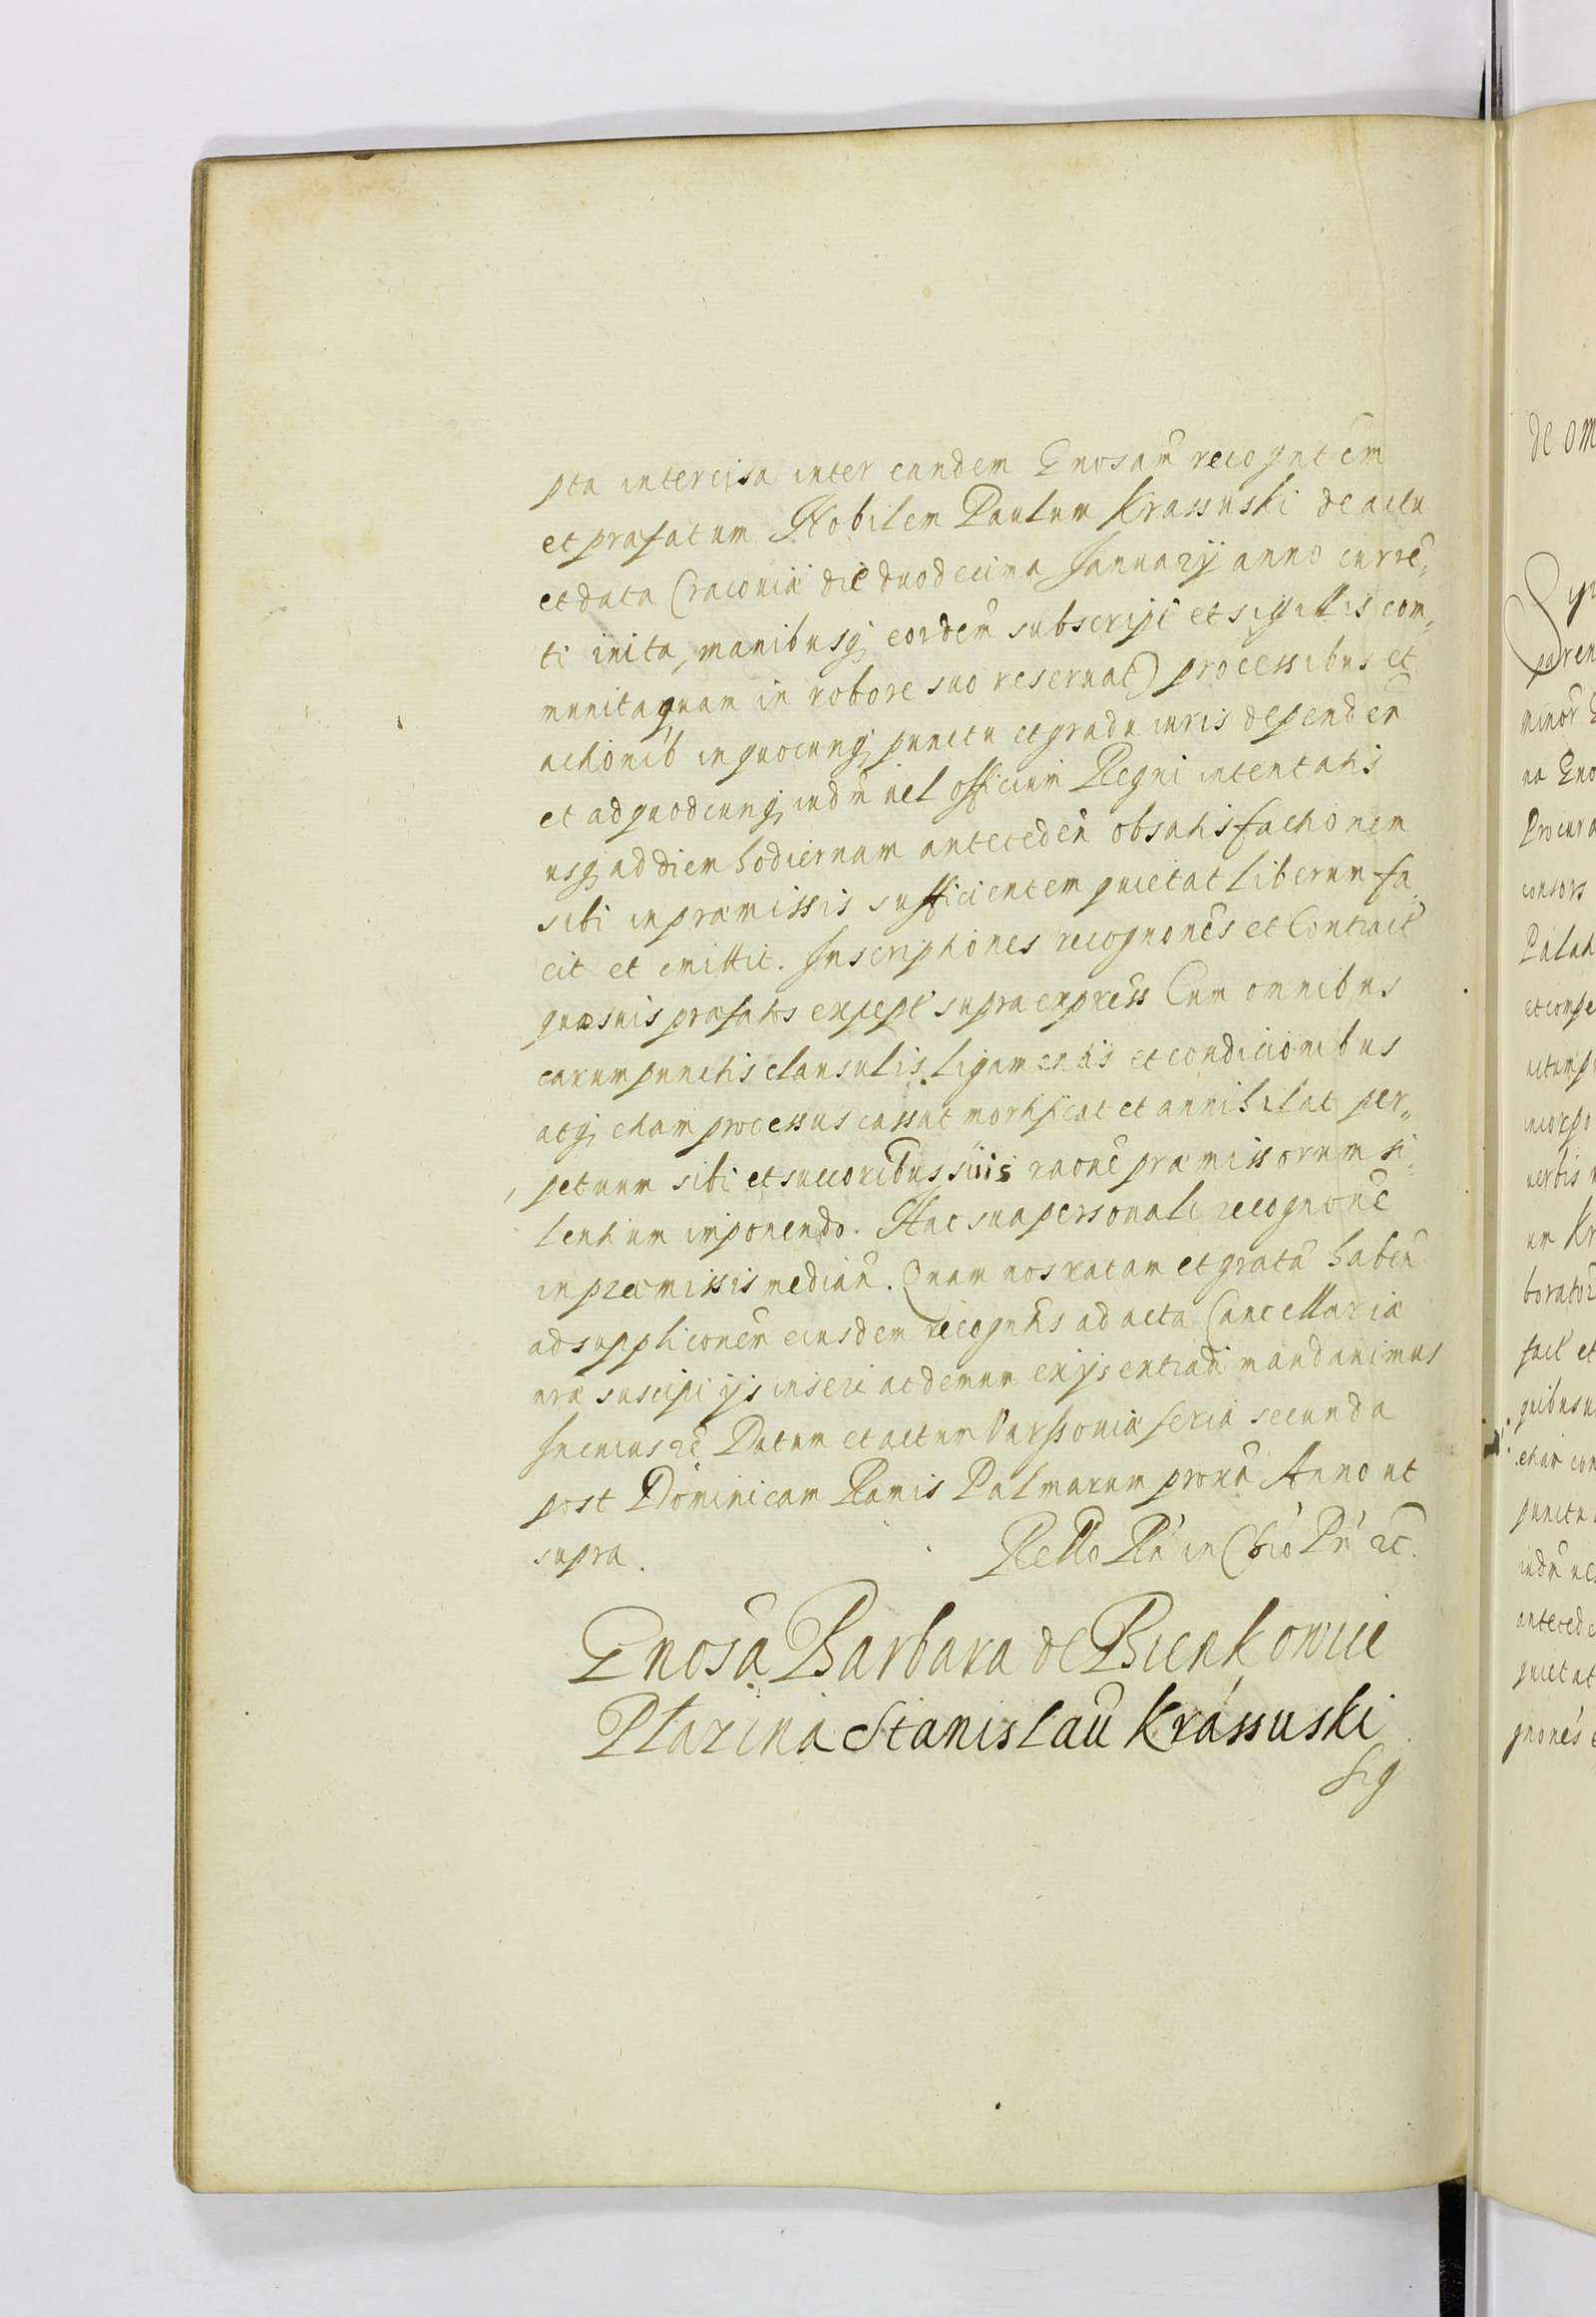 pta intercisa inter eandem Gnosam̃ recogntẽm
et præfatum Nobilem Paulum Krassuski de actu
et data Cracoviæ die duodecima Januarÿ anno curre„
ti inita, manibusq; eordem̃ subscript et sigillis com„
munita quam in robore suo reservat) processibus et
actionib in quocunq; punctu et gradu iuris dependen̄
et ad quodcunq; iudm̃ vel officium Regni intentatis
usq; ad diem hodiernam anteceden̄ ob satisfactionem
sibi in præmissis sufficientem quietat liberum fa„
cit et emittit. Inscriptiones recognones et Contract
quæsuis præfatos except supra express Cum omnibus
earum punctis clausulis, ligamentis et condicionibus
atq; etiam processus cassat mortificat et annihilat per„
petuum sibi et succoribus suis raone præmissorum si„
lentium imponendo. Hac sua personali recognone
in præmissis median̄. Quam nos ratam et gratã haben̄
ad supplicone͂m eiusdem recogntis ad acta Cancellariæ
nr̃æ suscipi ijs inseri ac demum ex ijs extradi mandavimus
In cuius rẽ Datum et actum Varssoviæ feria secunda
post Dominicam Ramis Palmarum proxã Anno ut
supra.
Rello Rã in Chio Pn̄ &c.
Gnosa Barbara de Bienkowice
Ptazina Stanislaũ Krassuski
de om
paren
minor̃ G
na Gno
Procura
consors
Palati
et compe
actum p
incorpo
verbis
um Kr
borator
facit et
quibusu
etiam con
punctu
iudm̃ ve
antecede
quietat
gnones